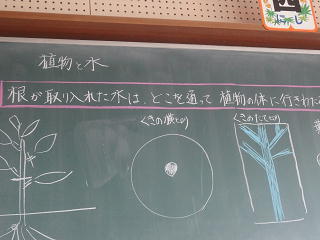 植物と水
根が取り入れた水は、どこを通って植物の体に行きわた
くきの横切り
くきのたて切り